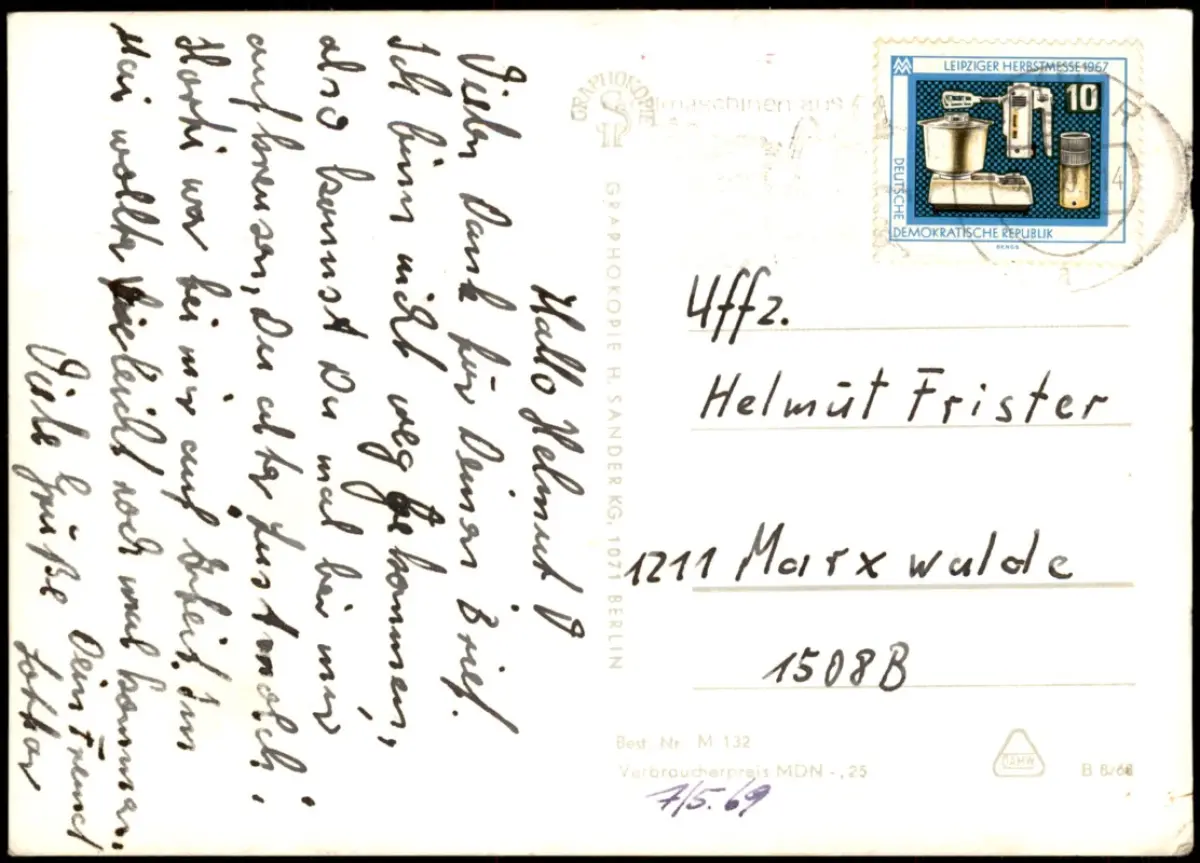 Hallo Helmut!
Vielen Dank für Deinen Brief.
Ich bin nicht weg gekommen,
also kannst Du mal bei mir
aufkreuzen, Du alter Lustmolch!
war bei mir auf Arbeit. Im
Mai wollte vielleicht noch mal kommen.
Viele Grüße Dein Freund
Lothar
GRAPHOSKOPIE
GRAPHOKOPIE H. SANDER KG, 1071 BERLIN
maschinen aus
LEIPZIGER HERBSTMESSE 1967
10
DEUTSCHE
DEMOKRATISCHE REPUBLIK
Uffz.
Helmut Frister
1211 Marxwalde
1508B
Best. Nr. M 132
Verbraucherpreis MDN -,25
B 8/68
7/5.69